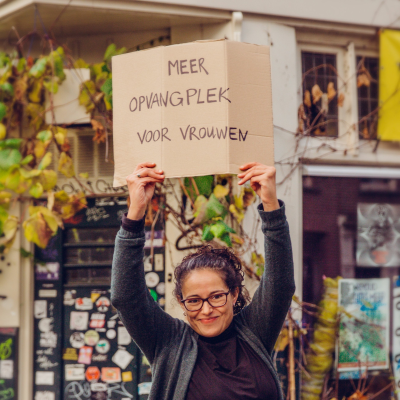 MEER
OPVANGPLEK
VOOR VROUWEN